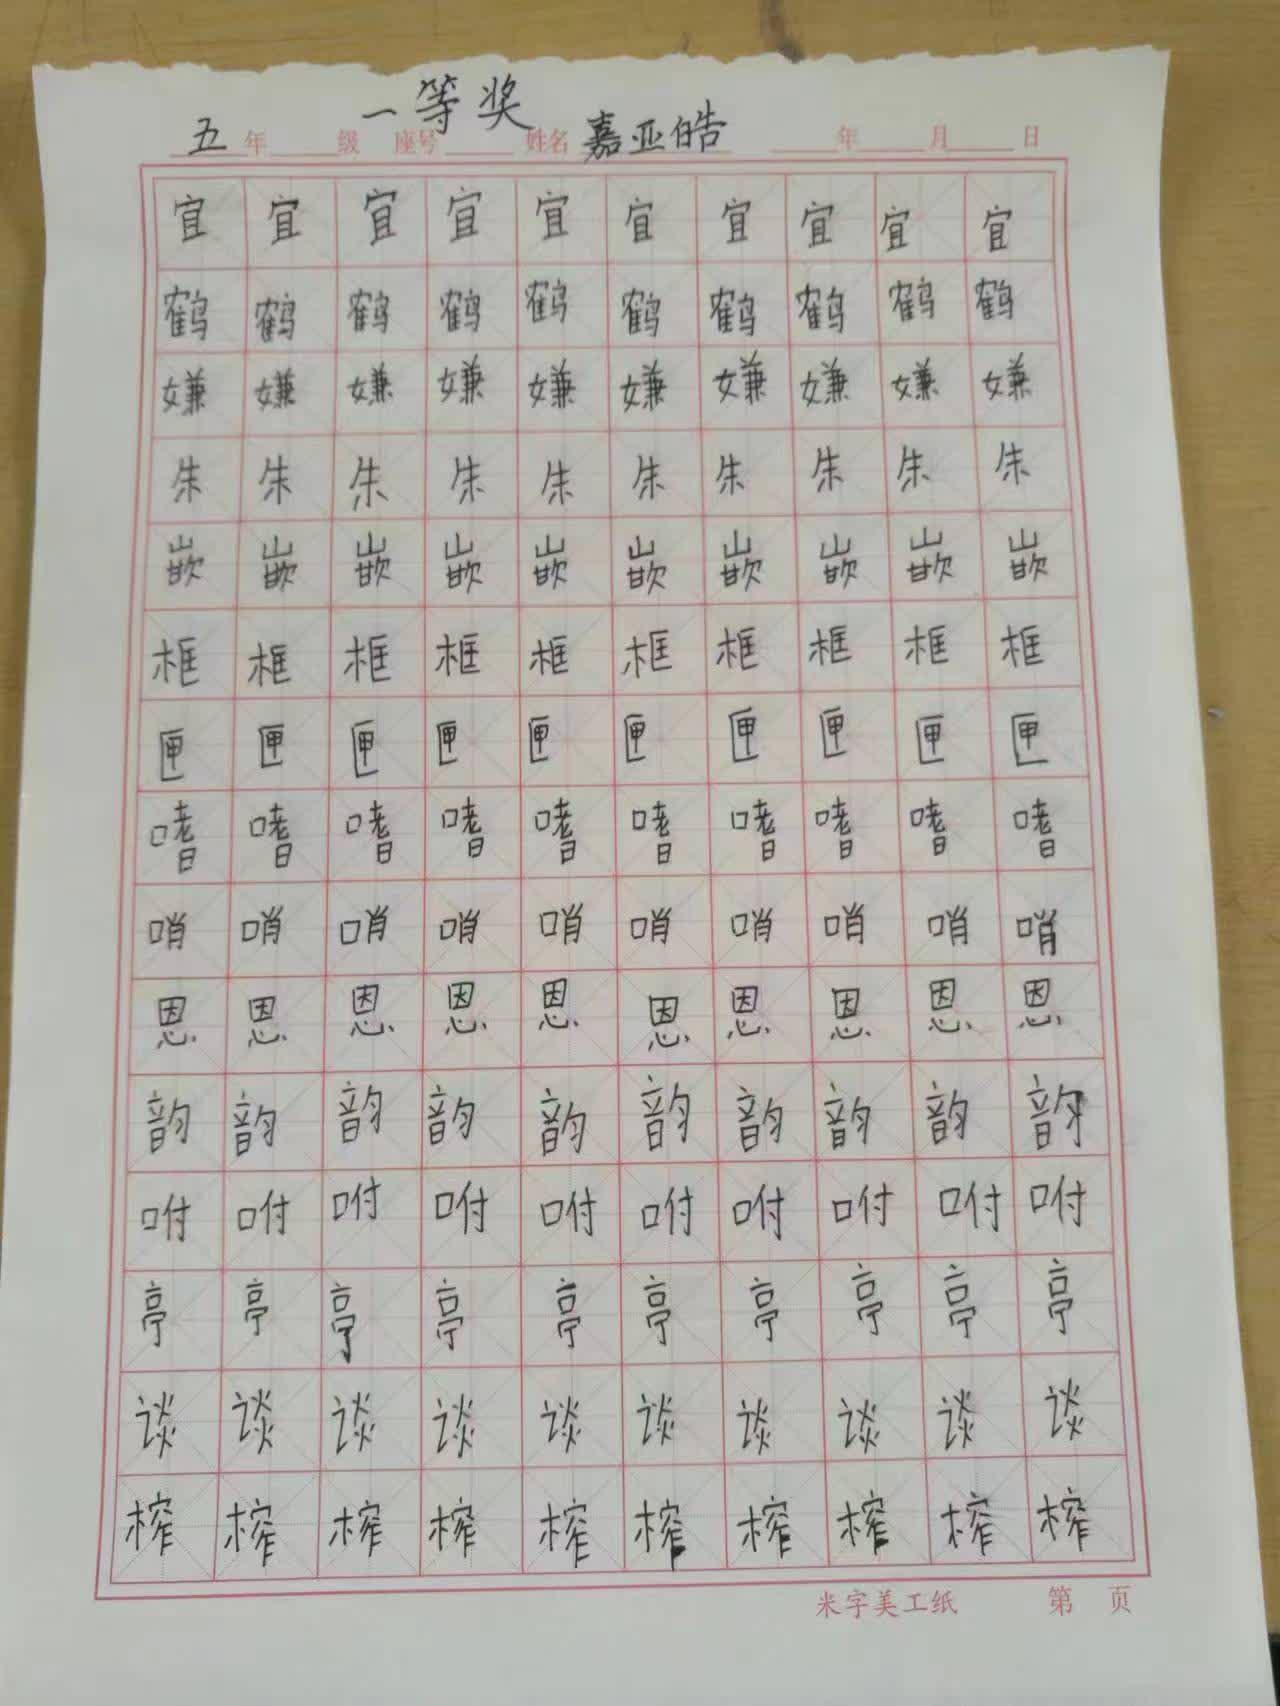 一等奖
五年 级 座号 姓名 嘉亚皓 年 月 日
宜 宜 宜 宜 宜 宜 宜 宜 宜 宜
鹤 鹤 鹤 鹤 鹤 鹤 鹤 鹤 鹤 鹤
嫌 嫌 嫌 嫌 嫌 嫌 嫌 嫌 嫌 嫌
朱 朱 朱 朱 朱 朱 朱 朱 朱 朱
嵌 嵌 嵌 嵌 嵌 嵌 嵌 嵌 嵌 嵌
框 框 框 框 框 框 框 框 框 框
匣 匣 匣 匣 匣 匣 匣 匣 匣 匣
嗜 嗜 嗜 嗜 嗜 嗜 嗜 嗜 嗜 嗜
哨 哨 哨 哨 哨 哨 哨 哨 哨 哨
恩 恩 恩 恩 恩 恩 恩 恩 恩 恩
韵 韵 韵 韵 韵 韵 韵 韵 韵 韵
咐 咐 咐 咐 咐 咐 咐 咐 咐 咐
亭 亭 亭 亭 亭 亭 亭 亭 亭 亭
谈 谈 谈 谈 谈 谈 谈 谈 谈 谈
榨 榨 榨 榨 榨 榨 榨 榨 榨 榨
米字美工纸 第 页